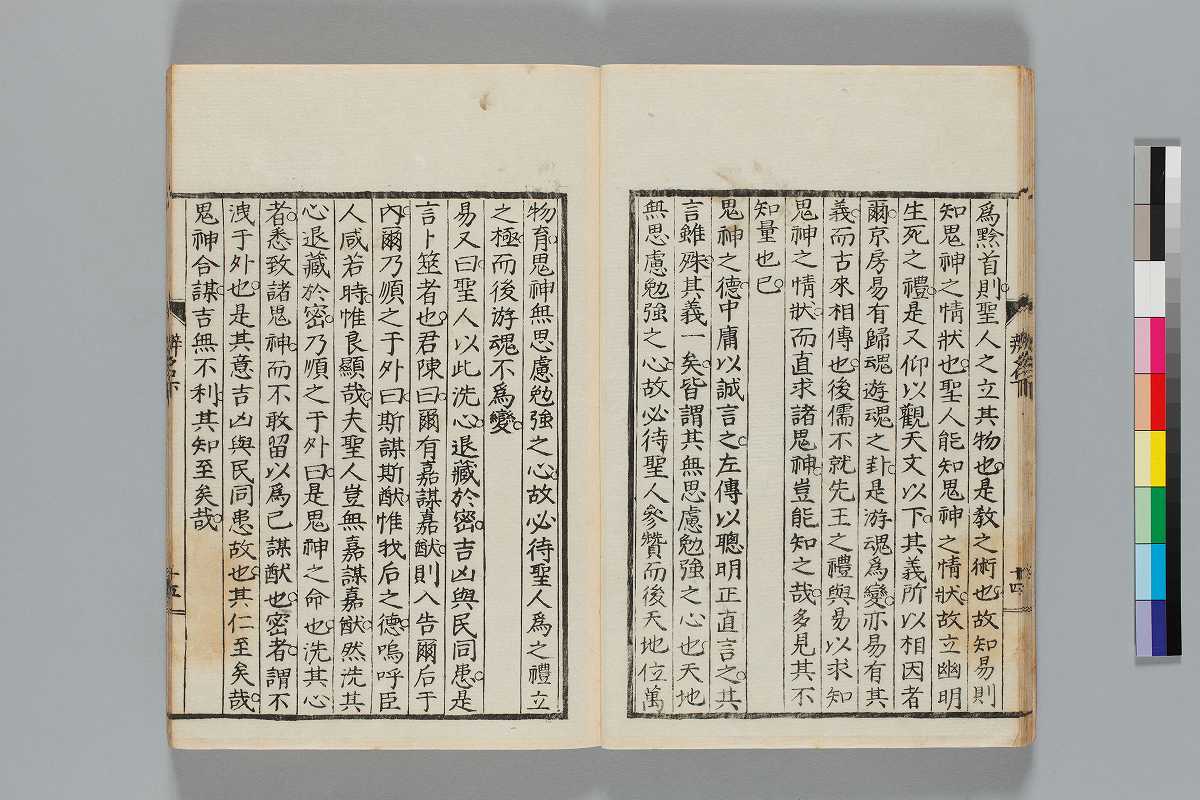 爲黔首則聖人之立其物也是敎之術也故知易則
知鬼神之情狀也聖人能知鬼神之情狀故立幽明
生死之禮是又仰以觀天文以下其義所以相因者
爾京房易有歸魂遊魂之卦是游魂爲變亦易有其
義而古來相傳也後儒不就先王之禮與易以求知
鬼神之情狀而直求諸鬼神豈能知之哉多見其不
知量也已
鬼神之德中庸以誠言之左傳以聰明正直言之其
言雖殊其義一矣皆謂其無思慮勉強之心也天地
無思慮勉強之心故必待聖人參贊而後天地位萬
辨名下
十四
物育鬼神無思慮勉強之心故必待聖人爲之禮立
之極而後游魂不爲變
易又曰聖人以此洗心退藏於密吉凶與民同患是
言卜筮者也君陳曰爾有嘉謀嘉猷則入告爾后于
內爾乃順之于外曰斯謀斯猷惟我后之德嗚呼臣
人咸若時惟良顯哉夫聖人豈無嘉謀嘉猷然洗其
心退藏於密乃順之于外曰是鬼神之命也洗其心
者悉致諸鬼神而不敢留以爲己謀猷也密者謂不
洩于外也是其意吉凶與民同患故也其仁至矣哉
鬼神合謀吉無不利其知至矣哉
辨名下
十五